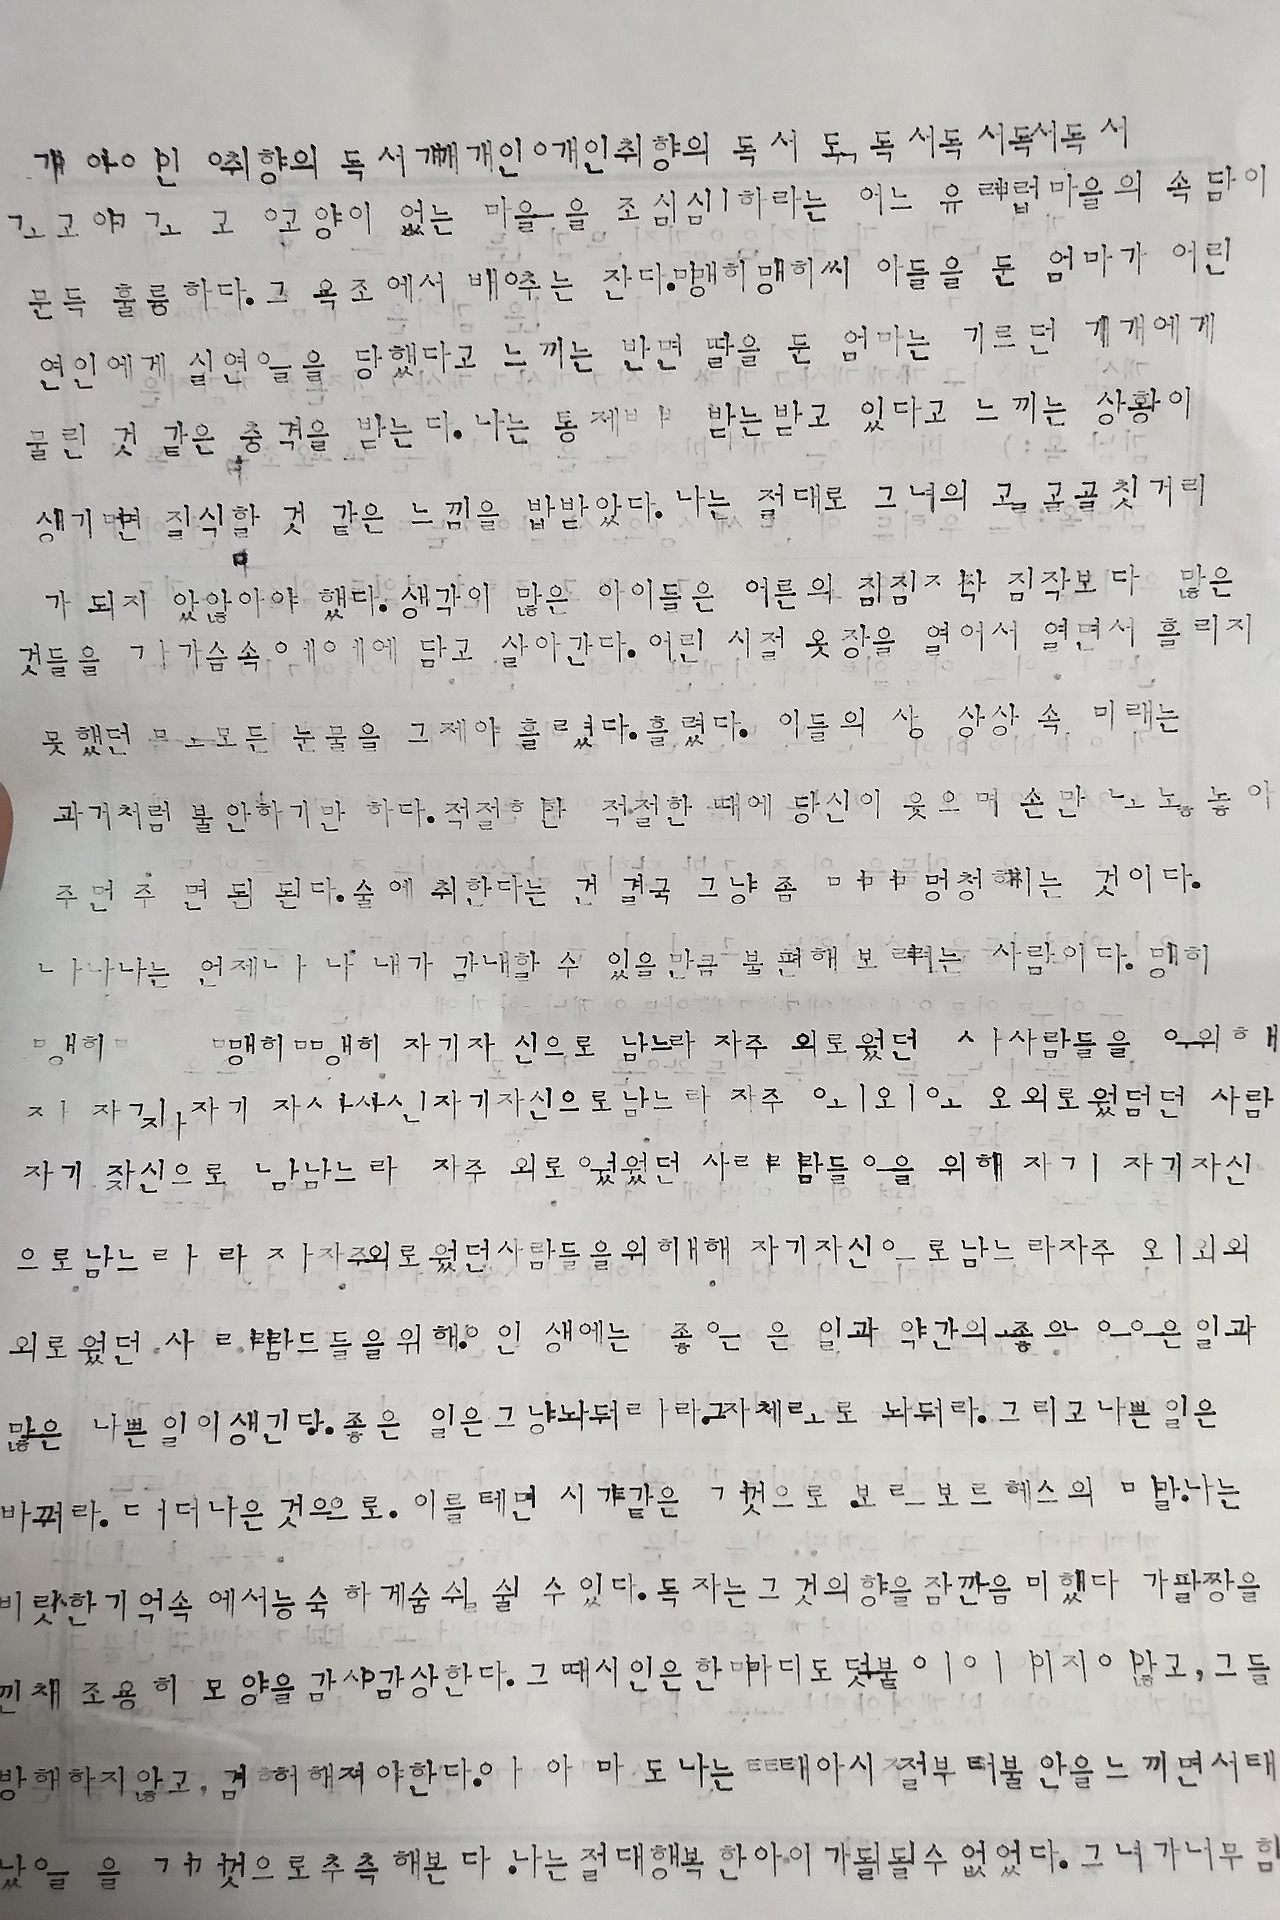 개 아이인 이취향의 독 서 개개개인이개인취향의 독 서 도, 독 서독 서독서독 서
고고야고 고 이고양이 없는 마을 을 조심심ㅣ하라는 어느 유 럽마을의 속담이
문득 훌륭하다.그 욕조에서 배추는 잔다.맹히맹히씨 아들을 둔 엄마가 어린
연인에게 실연을을 당했다고 느끼는 반면 딸을 둔 엄마는 기르던 개개에게
물린 것 같은 충격을 받는다.나는 통제 받는받고 있다고 느끼는 상황이
생기면 질식할 것 같은 느낌을 밥받았다.나는 절대로 그녀의 고골골칫거리
가 되지 았않아야 했다.생각이 많은 아이들은 어른의 짐짐ㅈ작 짐작보다 많은
것들을 ㄱㅏ가슴속 에에에 담고 살아간다.어린 시절 옷장을 열어서 열면서 흘리지
못했던 모모든 눈물을 그제야 흘렸다.흘렸다. 이들의 상 상상 속 미래는
과거처럼 불안하기만 하다.적절한 적절한 때에 당신이 웃으며 손만 노놓놓아
주먼주 면 된 된다.술에 취한다는 건 결국 그냥 좀 멍청해지는 것이다.
ㄴㅏ나나는 언제나 나 내가 감내할 수 있을만큼 불편해 보려는 사람이다. 맹히
맹히ㅁ 맹히ㅁ맹히 자기자신으로 남느라 자주 외로웠던 ㅅㅏ사람들을 으위해
ㅈㅏ 자기,자기 자사사신자기자신으로남느라 자주 외외외 오외로웠던던 사람
자기 잦신으로 남남느라 자주 외로웠웠던 사람들으을 위해 자ㄱㅣ 자기자신
으로남느라 라 ㅈㅏ자주외로웠던사람들을위해해 자기자신으로남느라자주 오ㅣ외외
외로웠던 사 ㄹ람드들을위해.인 생에는 좋으은 일과 약간의좋아 으으은일과
많은 나쁜일이생긴당.좋은 일은그냥놔둬라라.그자체로로 놔둬라.그리고나쁜일은
바꿔라.ㄷㅓ더나은것으으로. 이를테면 시같은 ㄱ것으로.보르보르헤스의 ㅁ말.나는
비릿한기억속에서능숙하게숨쉬 쉴 수있다.독자는그것의향을잠깐음미했다 가팔짱을
낀채 조용히 모양을감사감상한다.그때시인은한마마디도덧붙이이 이지이않고,그들
방해하지않고,겸허해져야한다.아 아 마 도나는ㅌ태아시절부터불안을느끼면서태
났을 을 것으로추측해본다.나는절대행복한아이가될될수없었다.그녀가너무힘